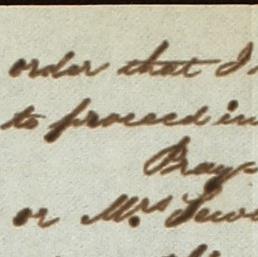 order that I
to proceed in
Pray
or Mrs Lewi